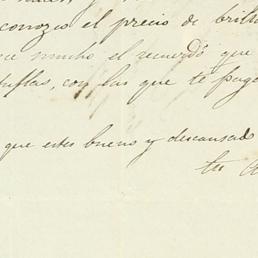 conozco el precio de brill
mucho el recuerdo que
con las que te pago
que estes bueno y descansado
tu